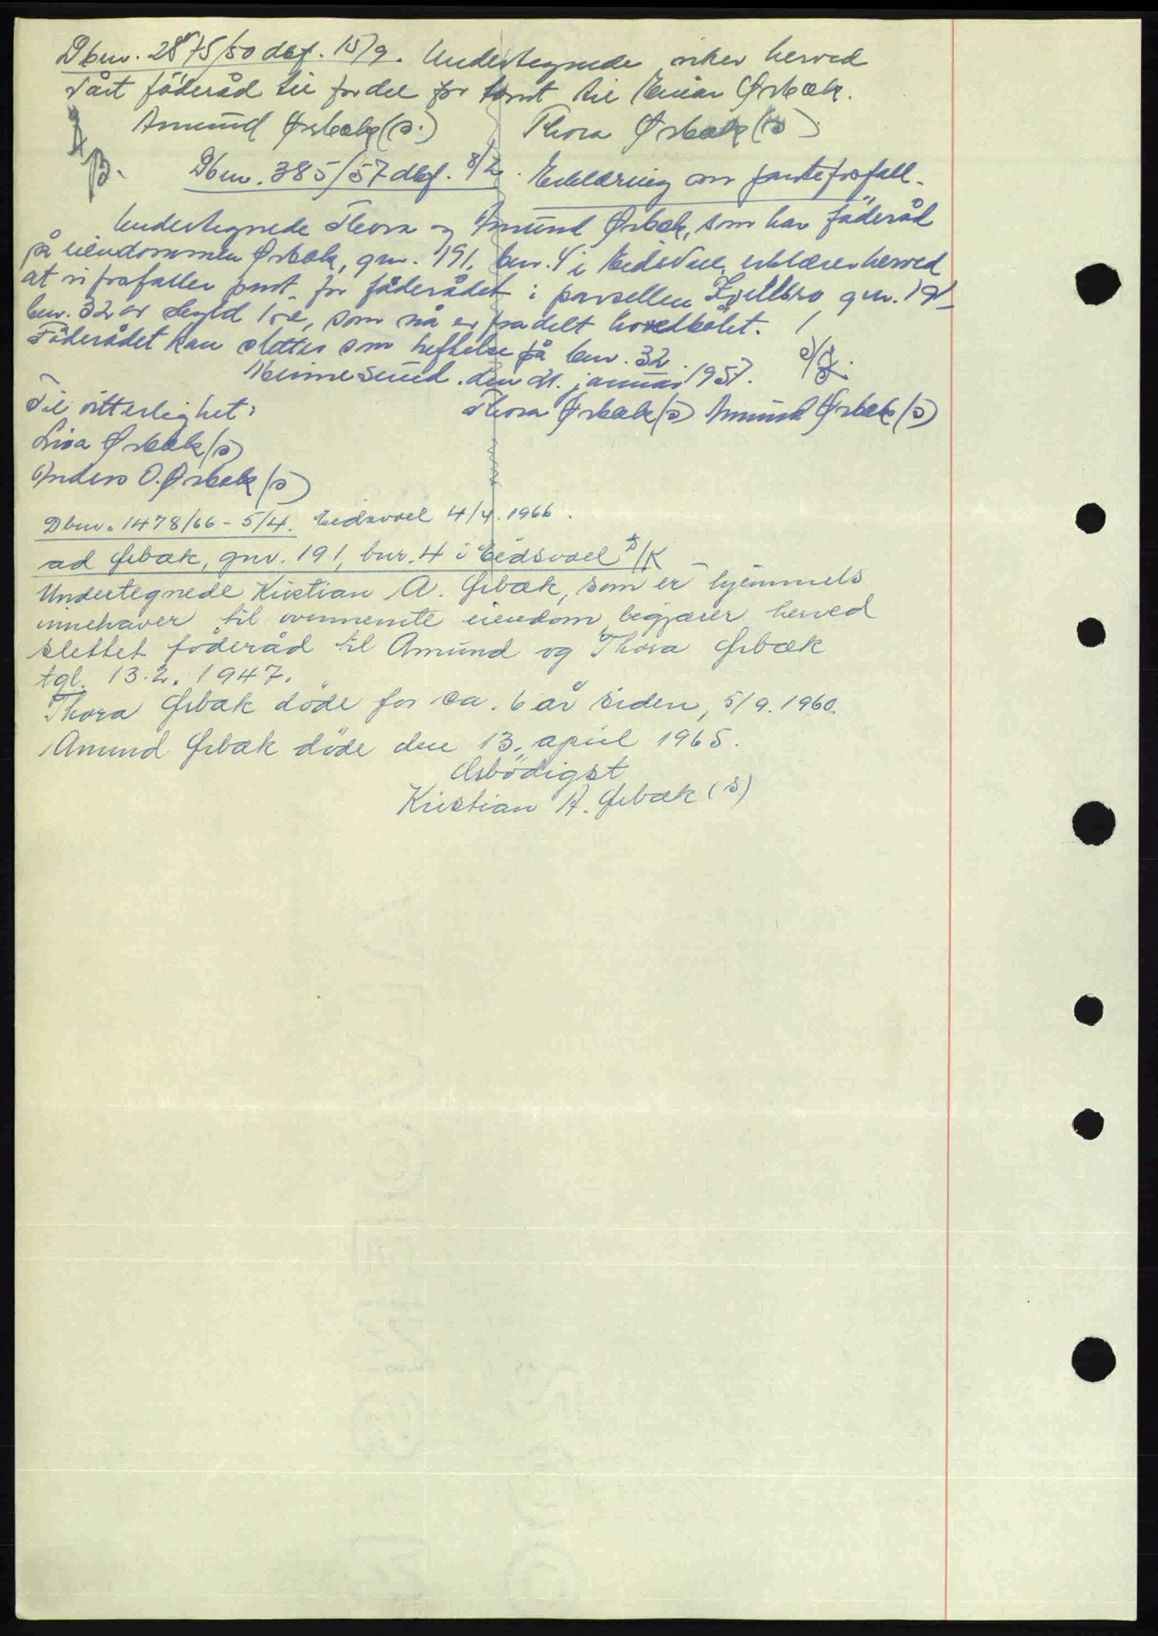 Dbnr. 2875/50 dbf. 15/9. Undertegnede viker herved
vårt föderåd til fordel for tomt til Einar Ørbæk.
Amund Ørbæk (s.) Thora Ørbæk (s)
B. Dbnr. 385/57 dbf. 8/2. Erklæring om pantefrafall.
Undertegnede Thora og Amund Ørbæk, som har föderåd
på eiendommen Ørbæk, gnr. 191, bnr. 4 i Eidsvoll, erklærer herved
at vi frafaller pant for föderådet i parsellen Kjellbro gnr. 191
bnr. 32 av skyld 1 öre, som nå er fradelt hovedbölet.
Föderådet kan slettes som heftelse på bnr. 32.
Minnesund, den 21. januar 1957.
Til vitterlighet: Thora Ørbæk (s) Amund Ørbæk (s)
Liva Ørbæk (s)
Anders O. Ørbæk (s)
Dbnr. 1478/66 - 5/4. Eidsvoll 4/4. 1966.
ad Ørbæk, gnr. 191, bnr. 4 i Eidsvoll S/K
Undertegnede Kristian A. Ørbæk, som er hjemmels
innehaver til ovennevnte eiendom, begjærer herved
slettet föderåd til Amund og Thora Ørbæk
tgl. 13.2. 1947.
Thora Ørbæk döde for ca. 6 år siden, 5/9. 1960.
Amund Ørbæk döde den 13. april 1965.
Ærbödigst
Kristian A. Ørbæk (s)